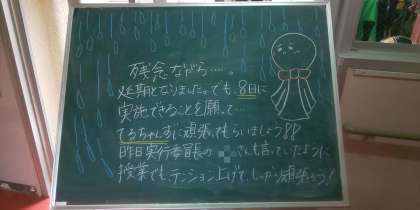 残念ながら….。
延期となりました。でも、8日に
実施できることを願って…
てるちゃんずに頑張ってもらいましょう!!
昨日実行委員長の さんも言っていたように
授業でもテンション上げて、しっかり頑張ろう!